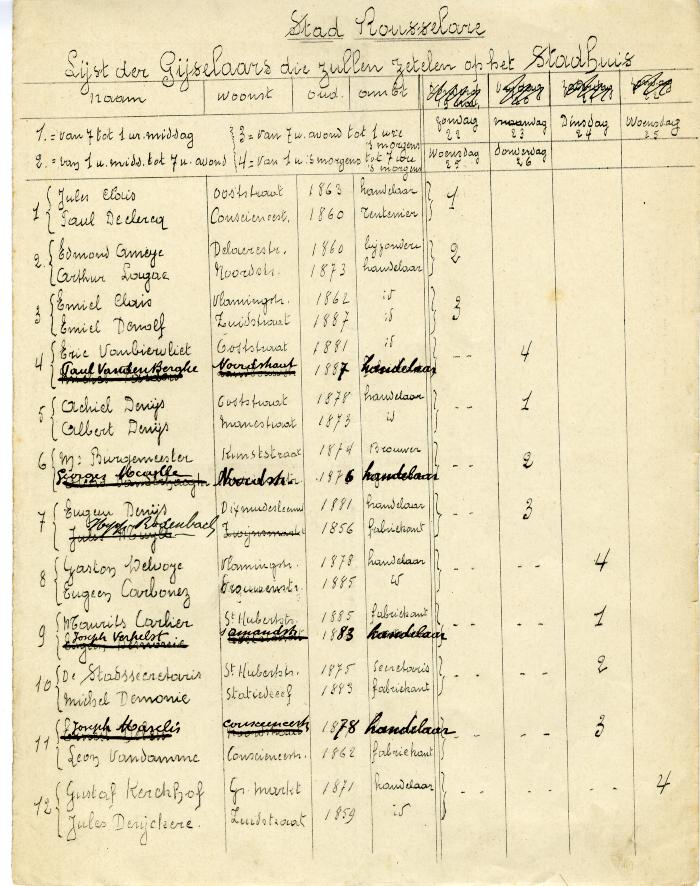 Stad Rousselare
Lijst der Gijselaars die zullen zetelen op het Stadhuis
naam woonst oud. ambt
Zondag 22 maandag 23 Dinsdag 24 Woensdag 25
Woensdag 25 Donderdag 26
1. = van 7 tot 1 u. middag
3 = van 7 u. avond tot 1 ure 's morgens
2. = van 1 u. midd. tot 7 u. avond
4 = van 1 u. 's morgens tot 7 ure 's morgens
1 Jules Clais Ooststraat 1863 handelaar 1
Paul Declercq Consciencest. 1860 Rentenier
2. Edmond Ameye Delaerestr. 1860 bijzondere 2
Arthur Lagae Noordstr. 1873 handelaar
3 Emiel Clais Vlamingstr. 1862 id 3
Emiel Denolf Zuidstraat 1887 id
4 Eric Vanbiervliet Ooststraat 1881 id 4
Paul VandenBerghe Noordstraat 1887 handelaar
5 Achiel Denijs Ooststraat 1878 handelaar 1
Albert Denijs Manestraat 1873 id
6 Mr Burgemeester Kunststraat 1874 Brouwer 2
Georges 1876 handelaar
7 Eugeen Denijs 1881 handelaar 3
Rodenbach Zwijnsmarkt 1856 fabriekant
8 Gaston Delvoye Vlamingstr. 1878 handelaar 4
Eugeen Carbonez 1885 id
9 Maurits Carlier St Hubertstr. 1885 fabriekant 1
Joseph Verhelst Amandstr 1883 handelaar
10 De Stadssecretaris St Hubertstr. 1875 Secretaris 2
Michel Demonie Statiedreef 1883 fabriekant
11 Joseph Marelis Consciencestr 1878 handelaar 3
Leon Vandamme Consciencestr. 1862 fabriekant
12 Gustaf Kerckhof Gr. Markt 1871 handelaar 4
Jules Derijckere. Zuidstraat 1859 id